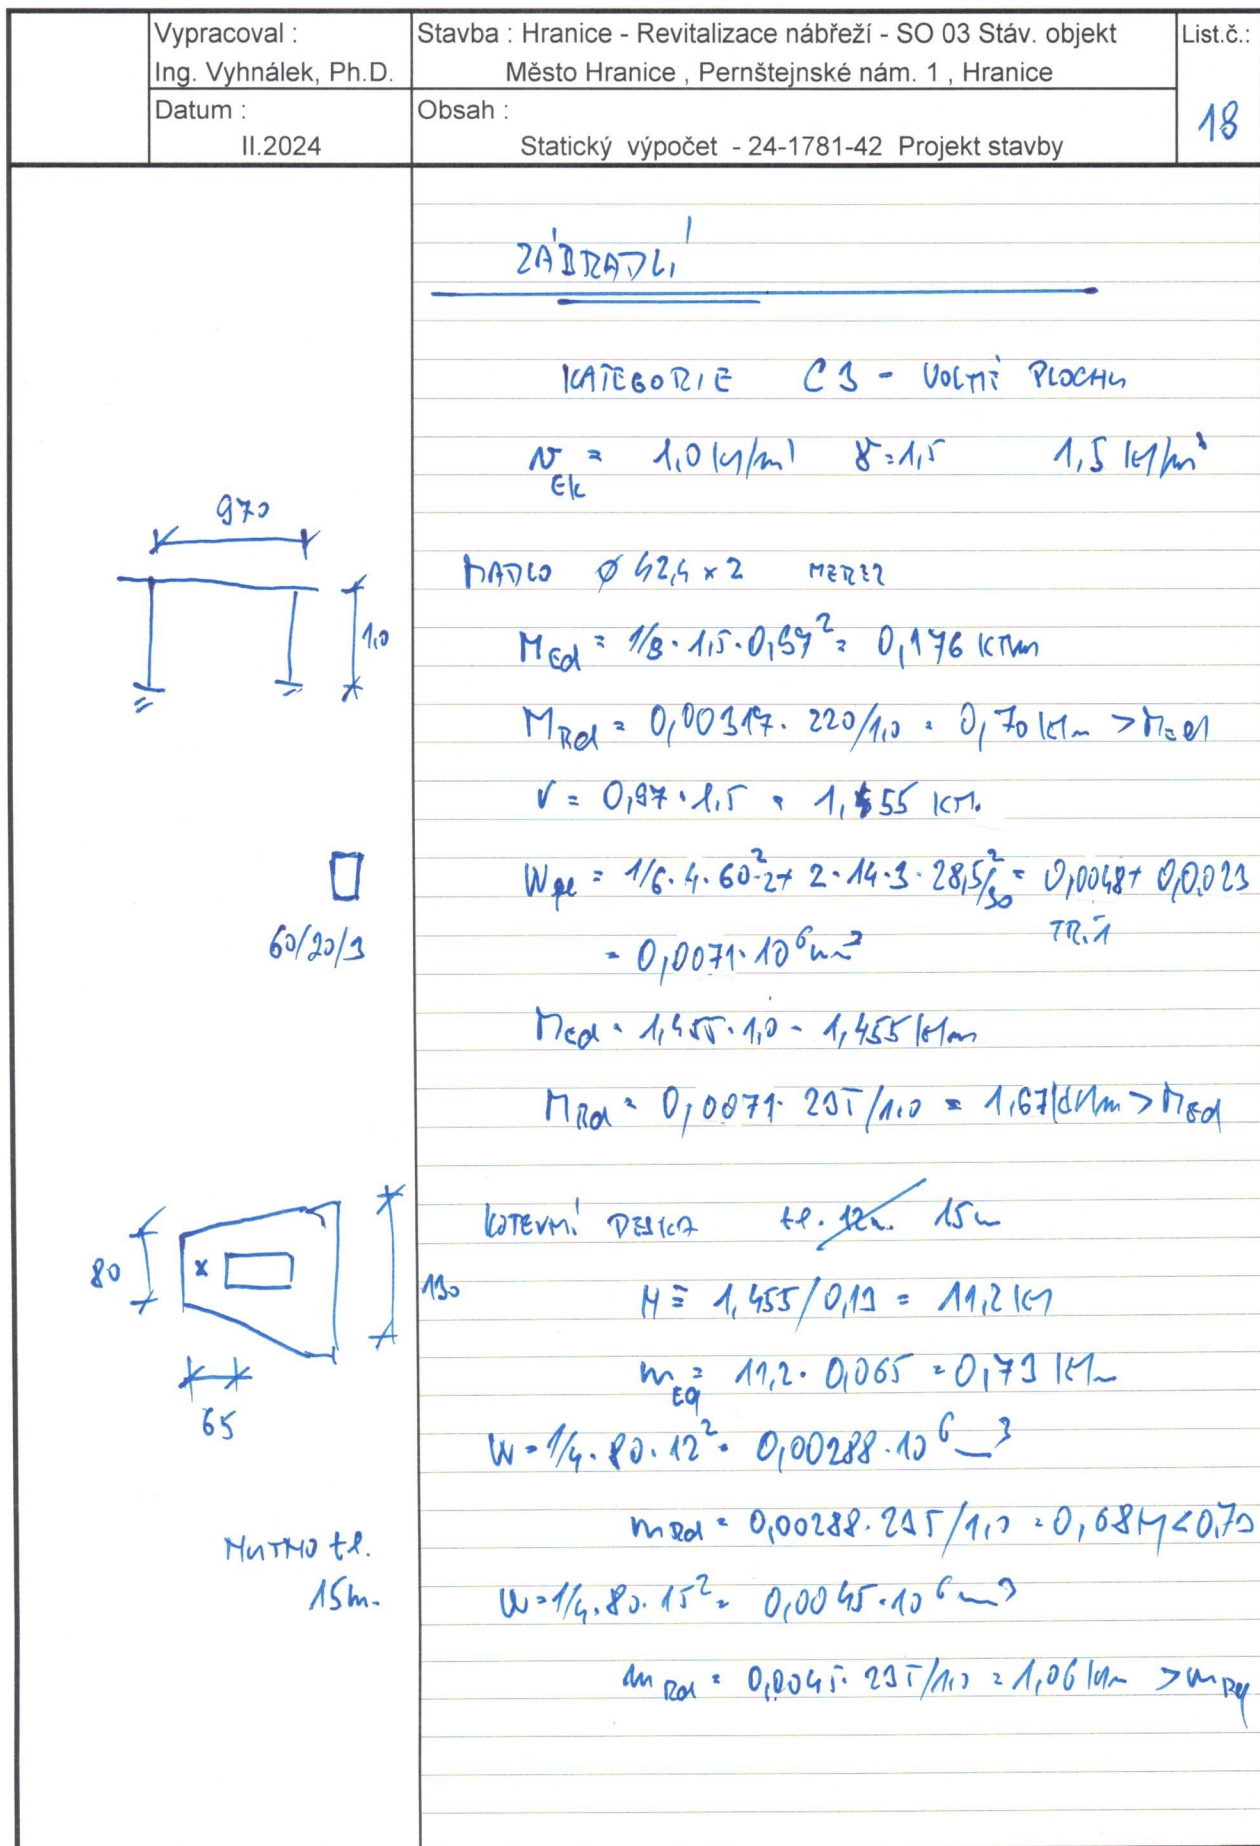 Vypracoval :
Ing. Vyhnálek, Ph.D.
Stavba : Hranice - Revitalizace nábřeží - SO 03 Stáv. objekt
Město Hranice , Pernštejnské nám. 1 , Hranice
List.č.:
18
Datum :
II.2024
Obsah :
Statický výpočet - 24-1781-42 Projekt stavby
ZÁBRADLÍ
KATEGORIE C3 - VOLNÉ PLOCHY
1,0 kN/m' γ=1,5 1,5 kN/m'
970
1,0
MADLO Ø 42,4 × 2 NEREZ
M Ed = 1/8 · 1,5 · 0,97² = 0,176 kNm
M Rd = 0,00317 · 220/1,0 = 0,70 kNm > M Ed
V = 0,97 · 1,5 = 1,455 kN
60/20/3
W pl = 1/6 · 4 · 60² · 2 + 2 · 14 · 3 · 28,5²/30 = 0,0048 + 0,0023
TR.1
= 0,0071 · 10⁶ mm³
M Ed = 1,455 · 1,0 = 1,455 kNm
M Rd = 0,0071 · 235/1,0 = 1,67 kNm > M Ed
KOTEVNÍ DESKA tl. 12m. 15m
80
130
65
N = 1,455/0,13 = 11,2 kN
m Ed = 11,2 · 0,065 = 0,73 kNm
W = 1/4 · 80 · 12² = 0,00288 · 10⁶ mm³
m Rd = 0,00288 · 235/1,0 = 0,68 < 0,73
NUTNO tl.
15m.
W = 1/4 · 80 · 15² = 0,0045 · 10⁶ mm³
m Rd = 0,0045 · 235/1,0 = 1,06 kNm > m